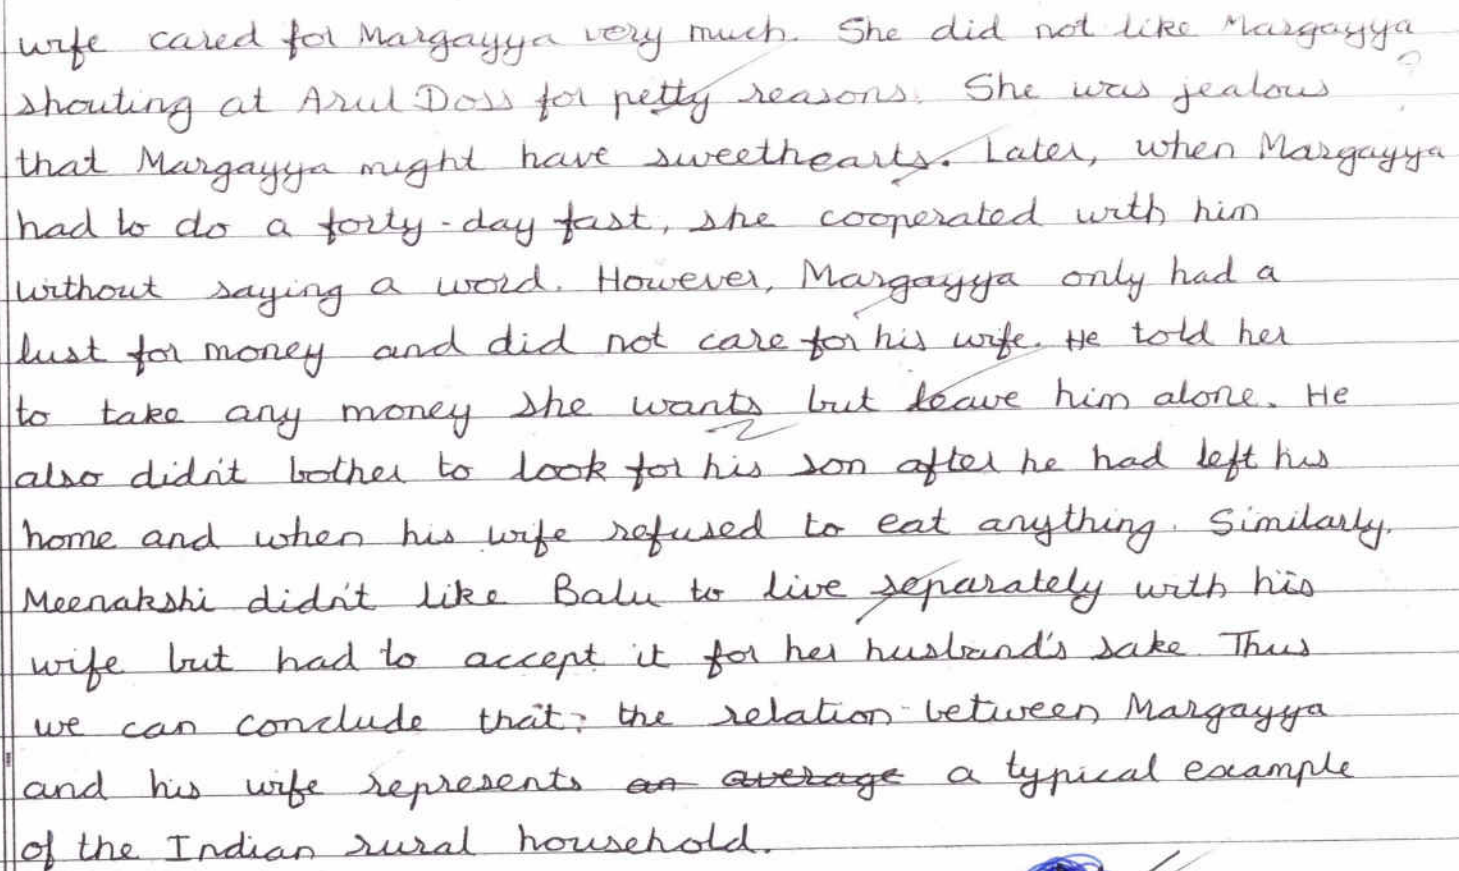 wife cared for Margayya very much. She did not like Margayya
shouting at Arul Doss for petty reasons. She was jealous
that Margayya might have sweethearts. Later, when Margayya
had to do a forty-day fast, she cooperated with him
without saying a word. However, Margayya only had a
lust for money and did not care for his wife. He told her
to take any money she wants but leave him alone. He
also didn't bother to look for his son after he had left his
home and when his wife refused to eat anything. Similarly,
Meenakshi didn't like Balu to live separately with his
wife but had to accept it for her husband's sake. Thus
we can conclude that: the relation between Margayya
and his wife represents an average a typical example
of the Indian rural household.